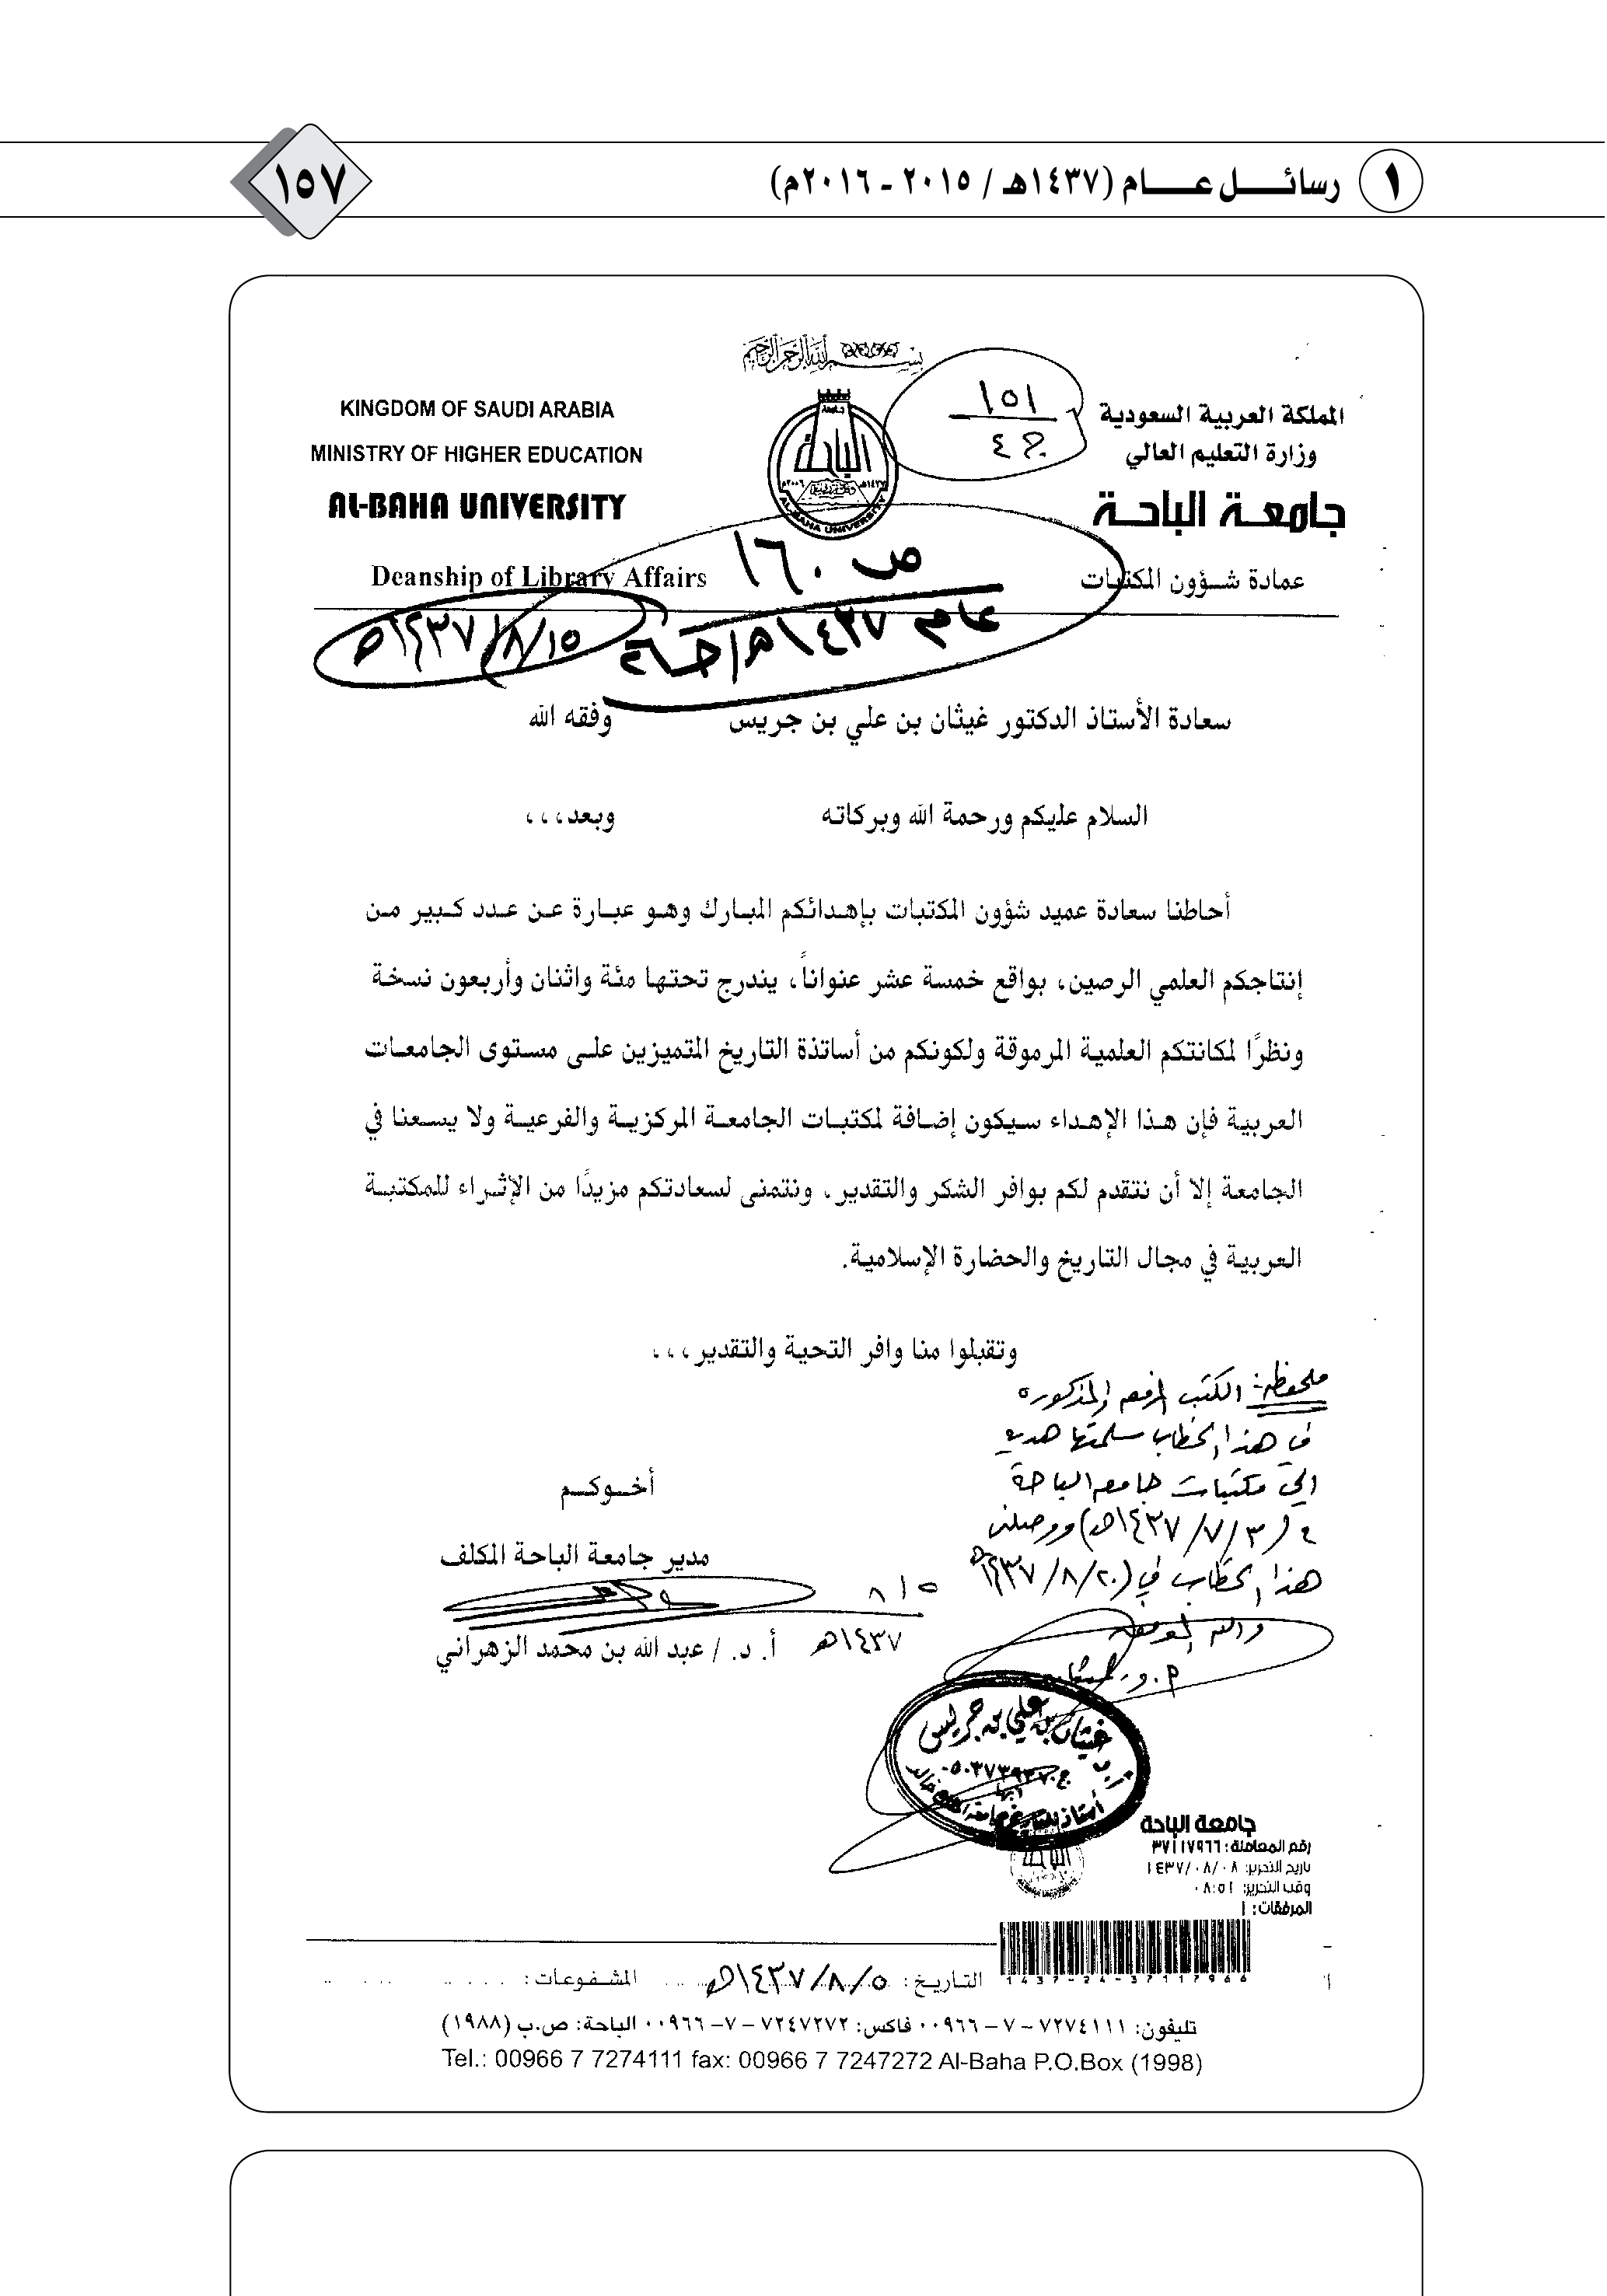 ١ رسائل عام (١٤٣٧هـ / ٢٠١٥ - ٢٠١٦م)
١٥٧
بسم الله الرحمن الرحيم
المملكة العربية السعودية
وزارة التعليم العالي
جامعة الباحة
عمادة شؤون المكتبات
١٥١
ج ٤
جامعة الباحة
AL-BAHA UNIVERSITY
KINGDOM OF SAUDI ARABIA
MINISTRY OF HIGHER EDUCATION
AL-BAHA UNIVERSITY
Deanship of Library Affairs
ص ١٦٠
عام ١٤٣٧هـ/
١٥/٨/١٤٣٧هـ
سعادة الأستاذ الدكتور غيثان بن علي بن جريس وفقه الله
السلام عليكم ورحمة الله وبركاته وبعد،،،
أحاطنا سعادة عميد شؤون المكتبات بإهدائكم المبارك وهو عبارة عن عدد كبير من
إنتاجكم العلمي الرصين، بواقع خمسة عشر عنواناً، يندرج تحتها مئة واثنان وأربعون نسخة
ونظرًا لمكانتكم العلمية المرموقة ولكونكم من أساتذة التاريخ المتميزين على مستوى الجامعات
العربية فإن هذا الإهداء سيكون إضافة لمكتبات الجامعة المركزية والفرعية ولا يسعنا في
الجامعة إلا أن نتقدم لكم بوافر الشكر والتقدير، ونتمنى لسعادتكم مزيدًا من الإثراء للمكتبة
العربية في مجال التاريخ والحضارة الإسلامية.
وتقبلوا منا وافر التحية والتقدير،،،
ملحوظة: الكتب المذكورة
في هذا الخطاب سلمتها هدية
إلى مكتبات جامعة الباحة
في (٣/٧/١٤٣٧هـ) ووصلني
هذا الخطاب في (٢٠/٨/١٤٣٧هـ
والله الموفق
أخوكم
مدير جامعة الباحة المكلف
٥ / ٨
١٤٣٧هـ
أ. د. / عبد الله بن محمد الزهراني
غيثان بن علي بن جريس
أستاذ التاريخ جامعة الملك خالد
جامعة الباحة
رقم المعاملة: ٣٧١١٧٩٦٦
تاريخ التحرير: ١٤٣٧/٠٨/٠٨
وقت التحرير: ٠٨:٥١
المرفقات: ١
1437-24-37117966
التاريخ: ٥/٨/١٤٣٧هـ المشفوعات:
تليفون: ٧٢٧٤١١١ – ٧ – ٠٠٩٦٦ فاكس: ٧٢٤٧٢٧٢ – ٧ – ٠٠٩٦٦ الباحة: ص.ب (١٩٨٨)
Tel.: 00966 7 7274111 fax: 00966 7 7247272 Al-Baha P.O.Box (1998)